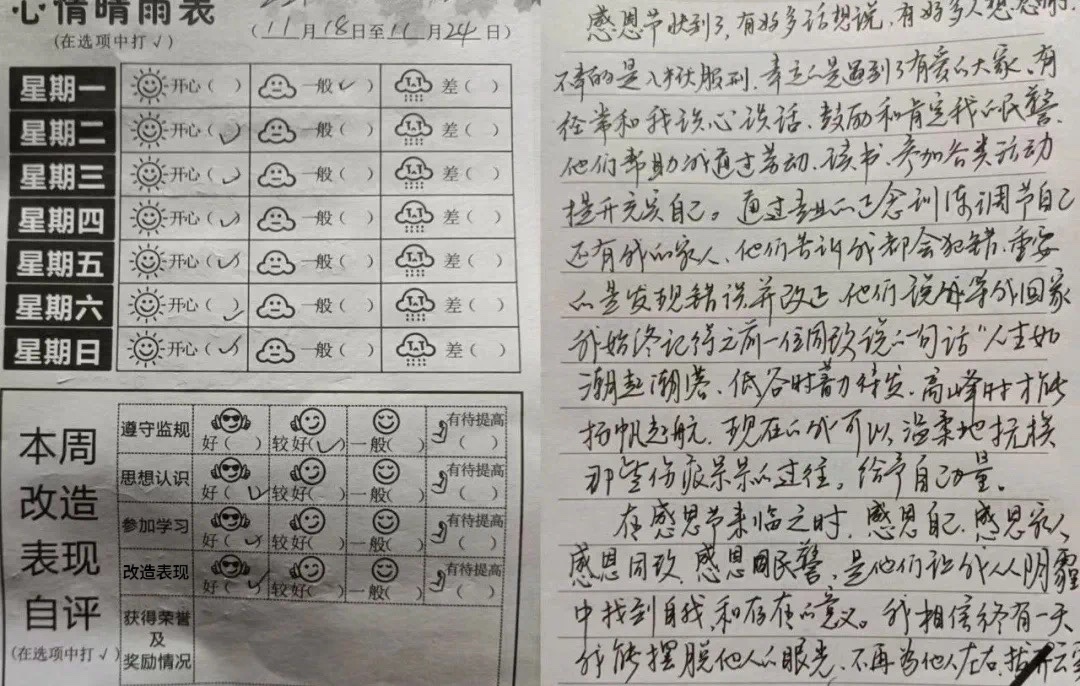 心情晴雨表
(在选项中打√)
(11月18日至11月24日)
星期一 开心( ) 一般(√) 差( )
星期二 开心(√) 一般( ) 差( )
星期三 开心(√) 一般( ) 差( )
星期四 开心(√) 一般( ) 差( )
星期五 开心(√) 一般( ) 差( )
星期六 开心(√) 一般( ) 差( )
星期日 开心(√) 一般( ) 差( )
本周改造表现自评
(在选项中打√)
遵守监规 好( ) 较好(√) 一般( ) 有待提高( )
思想认识 好(√) 较好( ) 一般( ) 有待提高( )
参加学习 好(√) 较好( ) 一般( ) 有待提高( )
改造表现 好(√) 较好( ) 一般( ) 有待提高( )
获得荣誉及奖励情况
感恩节快到了,有好多话想说,有好多人想感谢.
不幸的是入狱服刑.幸运的是遇到了有爱的大家、有
经常和我谈心谈话、鼓励和肯定我的民警.
他们帮助我通过劳动、读书、参加各类活动
提升充实自己。通过专业的正念训练调节自己
还有我的家人、他们告诉我都会犯错、重要
的是发现错误并改正、他们说等我回家
我始终记得之前一位同改说的一句话"人生如
潮起潮落、低谷时蓄力待发、高峰时才能
扬帆起航.现在的我可以温柔地抚摸
那些伤痕累累的过往,给予自己力量。
在感恩节来临之时,感恩自己、感恩家人
感恩同改、感恩民警、是他们让我从阴霾
中找到自我、和存在的意义。我相信终有一天
我能摆脱他人的眼光、不再为他人左右、